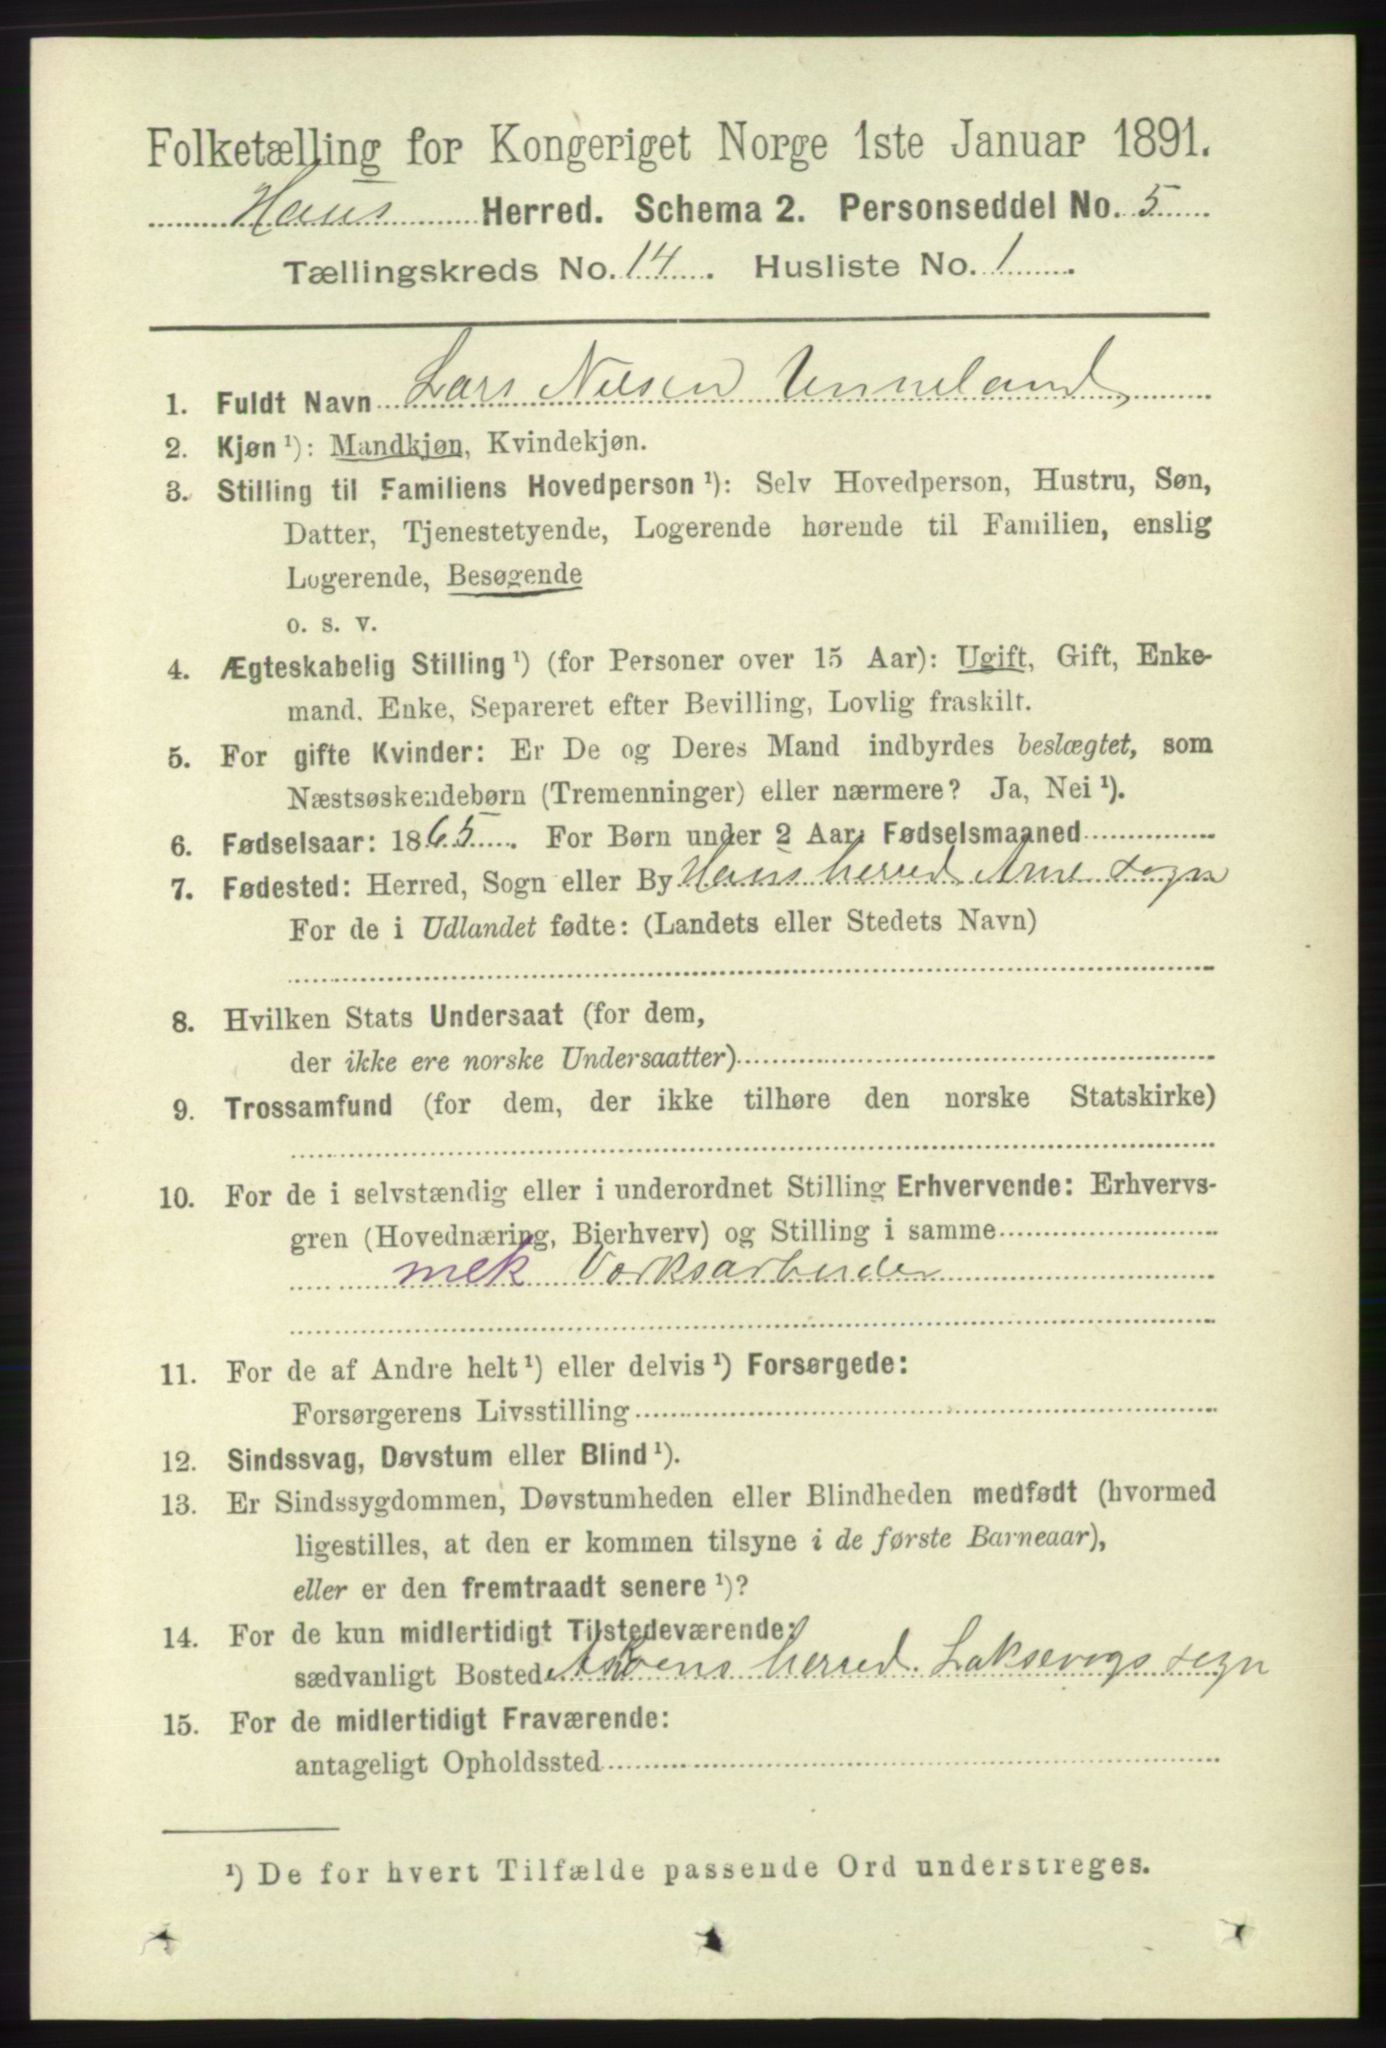 Folketælling for Kongeriget Norge 1ste Januar 1891.
Haus Herred. Schema 2. Personseddel No. 5
Tællingskreds No. 14. Husliste No. 1.
1. Fuldt Navn Lars Nilsen Unneland,
2. Kjøn ¹): Mandkjøn, Kvindekjøn.
3. Stilling til Familiens Hovedperson ¹): Selv Hovedperson, Hustru, Søn,
Datter, Tjenestetyende, Logerende hørende til Familien, enslig
Logerende, Besøgende
o. s. v.
4. Ægteskabelig Stilling ¹) (for Personer over 15 Aar): Ugift, Gift, Enke-
mand, Enke, Separeret efter Bevilling, Lovlig fraskilt.
5. For gifte Kvinder: Er De og Deres Mand indbyrdes beslægtet, som
Næstsøskendebørn (Tremenninger) eller nærmere? Ja, Nei ¹).
6. Fødselsaar: 1865. For Børn under 2 Aar: Fødselsmaaned
7. Fødested: Herred, Sogn eller By Haus herred Arne sogn
For de i Udlandet fødte: (Landets eller Stedets Navn)
8. Hvilken Stats Undersaat (for dem,
der ikke ere norske Undersaatter)
9. Trossamfund (for dem, der ikke tilhøre den norske Statskirke)
10. For de i selvstændig eller i underordnet Stilling Erhvervende: Erhvervs-
gren (Hovednæring, Bierhverv) og Stilling i samme
mek Værksarbeider
11. For de af Andre helt ¹) eller delvis ¹) Forsørgede:
Forsørgerens Livsstilling
12. Sindssvag, Døvstum eller Blind ¹).
13. Er Sindssygdommen, Døvstumheden eller Blindheden medfødt (hvormed
ligestilles, at den er kommen tilsyne i de første Barneaar),
eller er den fremtraadt senere ¹)?
14. For de kun midlertidigt Tilstedeværende:
sædvanligt Bosted Askøens herred. Laksevogs sogn
15. For de midlertidigt Fraværende:
antageligt Opholdssted
¹) De for hvert Tilfælde passende Ord understreges.